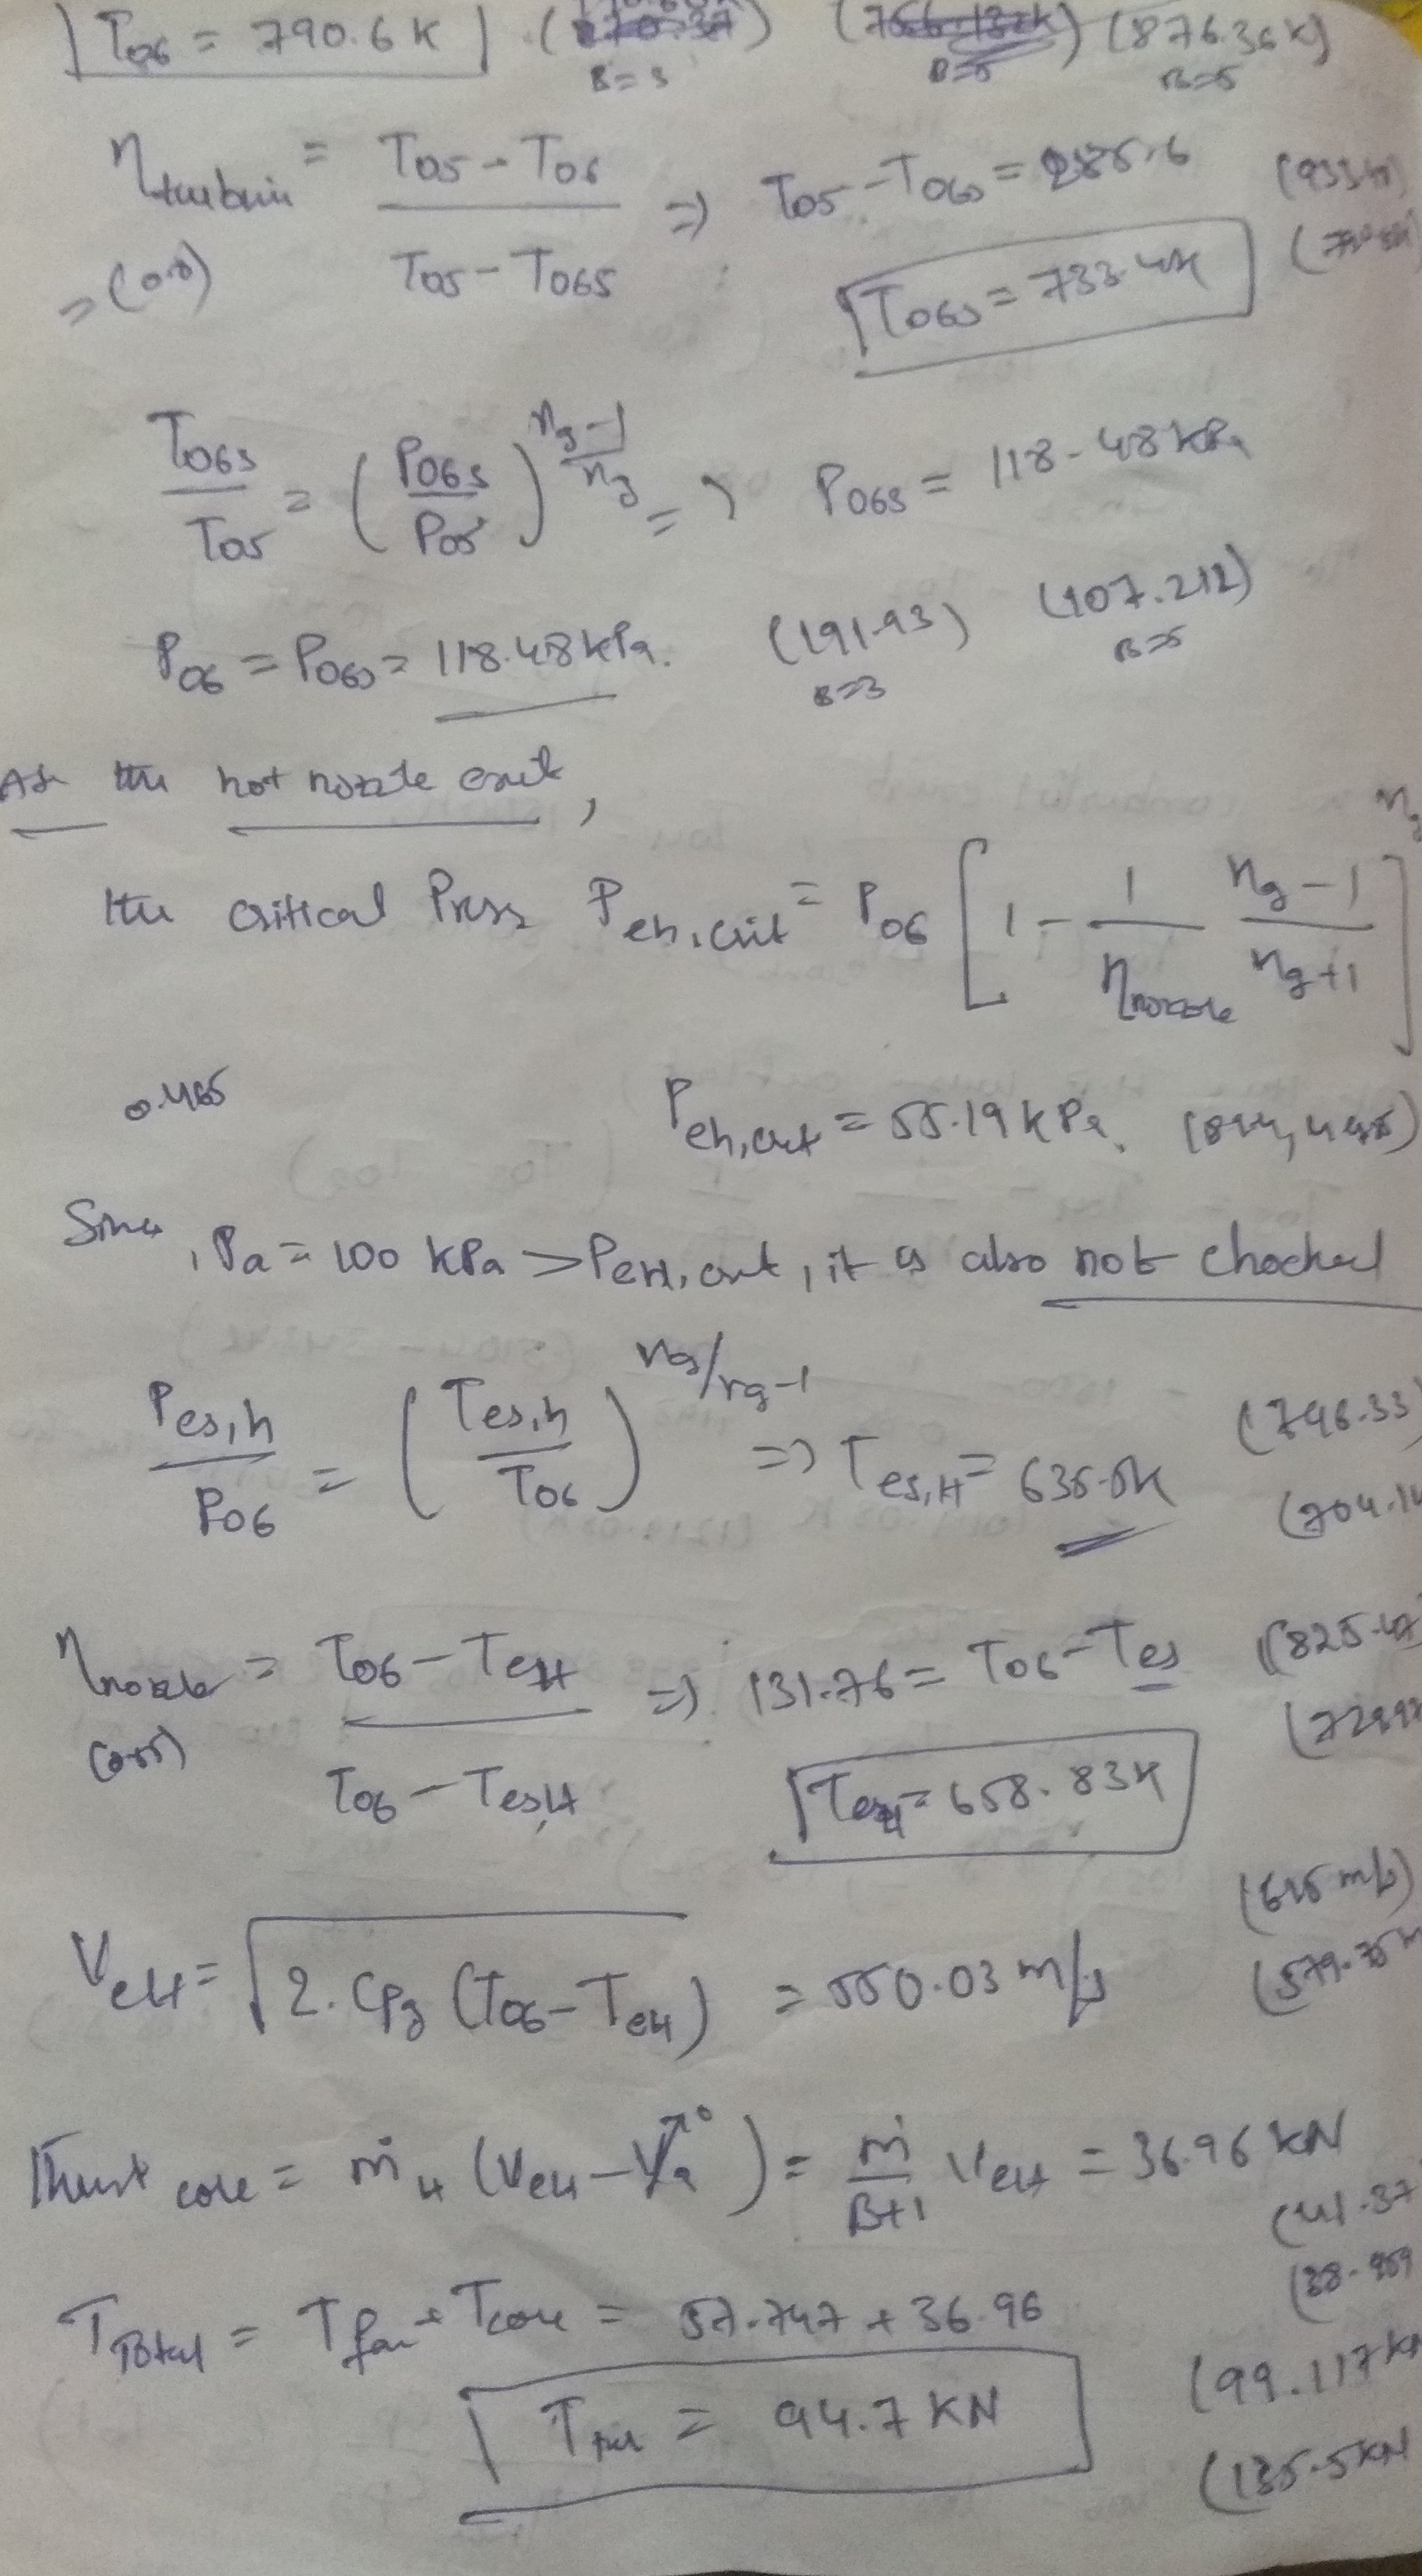 T06 = 790.6 K (876.36 K)
B=3 B=5 B=5
ηturbin = (T05 - T06) / (T05 - T06s) => T05 - T06s = 285.6
=(0.8)
T06s = 733.4K
T06s / T05 = (P06s / P05)^((γg-1)/γg) => P06s = 118.48 kPa
P06 = P06s = 118.48 kPa. (191.93) (107.212)
B=3 B=5
At the hot nozzle exit,
the critical Press Peh,crit = P06 [1 - 1/ηnozzle (γg-1)/(γg+1)]
0.465
Peh,crit = 55.19 kPa.
Since, Pa = 100 kPa > PeH,crit, it is also not chocked
Pes,h / P06 = (Tes,h / T06)^(γg/γg-1) => Tes,H = 635.5K (746.33)
(704.14
ηnozzle = (T06 - TeH) / (T06 - Tes,H) => 131.76 = T06 - Tes (825.47
TeH = 658.83K
(615 m/s)
VeH = √(2.Cpg (T06 - TeH)) = 550.03 m/s
Thrust core = ṁH (VeH - Va→0) = ṁ/(B+1) VeH = 36.96 KN
(41.37
TTotal = Tfan + Tcore = 57.747 + 36.96
(99.117 KN
= 94.7 KN
(135.5KN